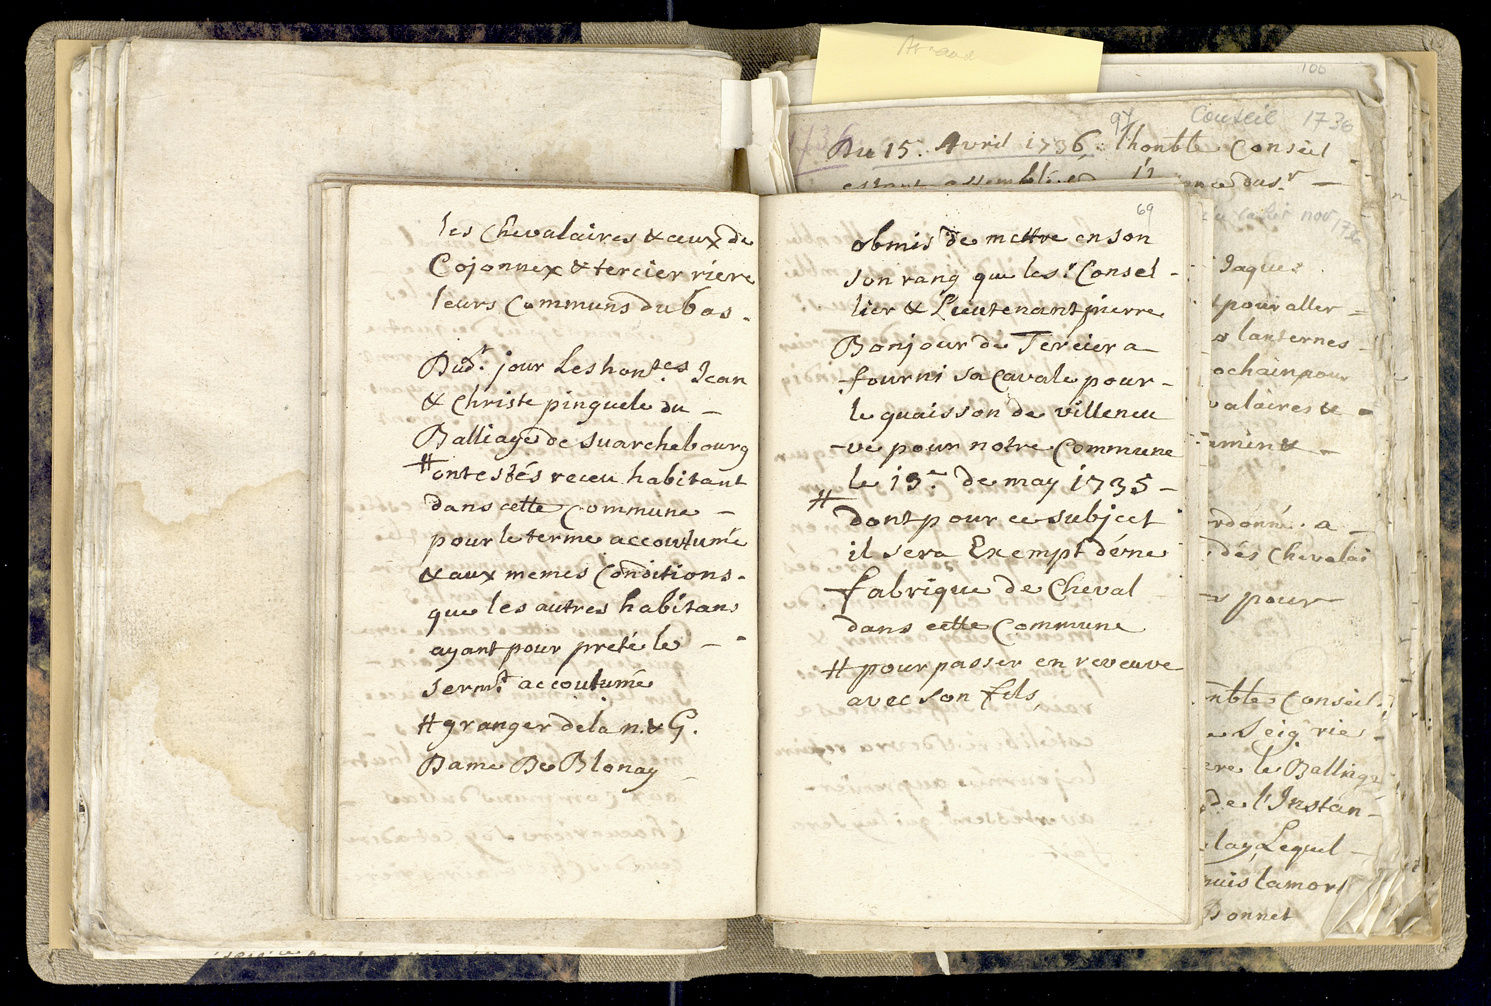 les Chevalaires & ceux de
Cojonnex & tercier riere
leurs Communs du bas.
Dud.t jour Les hon.tes Jean
& Christe pinguele du –
Balliage de suarchebourg
# ont estés receu habitant
dans cette Commune –
pour le terme accoutumé
& aux memes Conditions.
que les autres habitans
ayant pour preté le –
serm.t accoutumé
# granger de la n. & G.
Dame De Blonay –
69
obmis de mettre en son
son rang que le s.r Consel-
lier & Lieutenant pierre
Bonjour de Tercier a
fourni sa Cavale pour-
le quaisson de villeneu
-ve pour notre Commune
le 19.e de may 1735 –
# dont pour ce subject
il sera Exempt d'éne
fabrique de Cheval
dans cette Commune
# pour passer en reveuve
avec son fils
100
97
Conseil 1736
Du 15. Avril 1736. l'honble Conseil
estant assemblé
nov 1736
Jaques
pour aller
lanternes
ochain pour
valaires &
ordonné. a
dés Chevalai
pour
nble Conseil.
Seig.rie
le Balliag
de l'Instan-
lay Lequel –
puis la mort
Bonnet